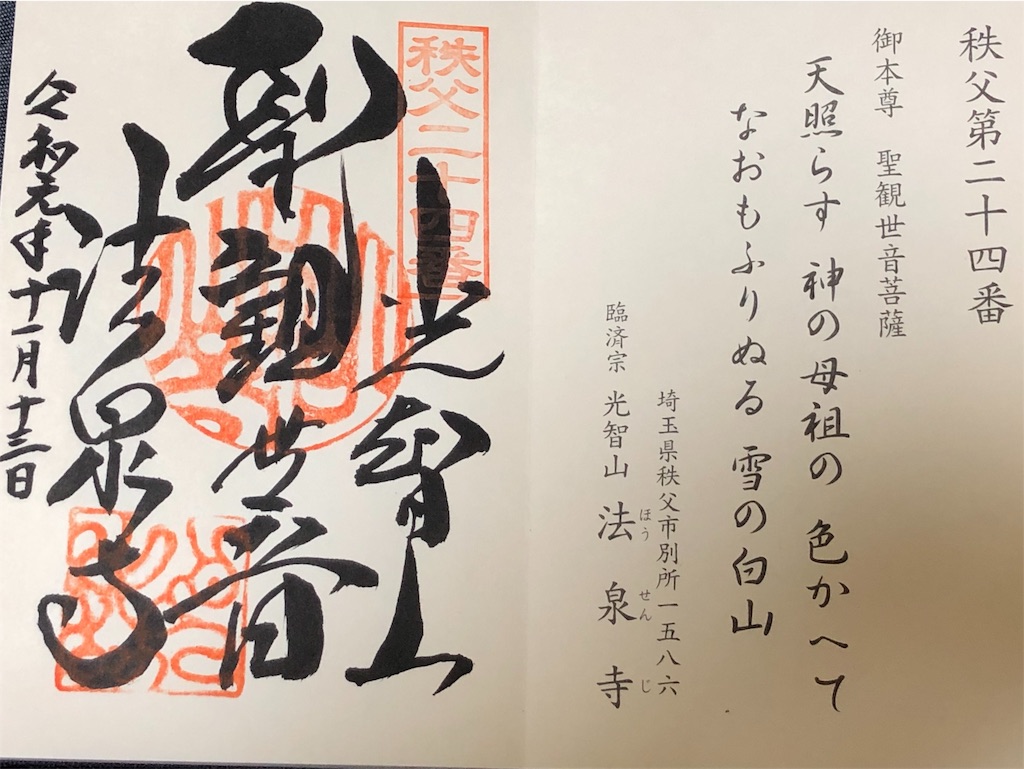 秩父第二十四番
御本尊 聖観世音菩薩
天照らす 神の母祖の 色かへて
なおもふりぬる 雪の白山
埼玉県秩父市別所一五八六
臨済宗 光智山 法泉寺
ほうせんじ
秩父二十四番
光智山
聖観世音
法泉寺
令和元年十一月十三日